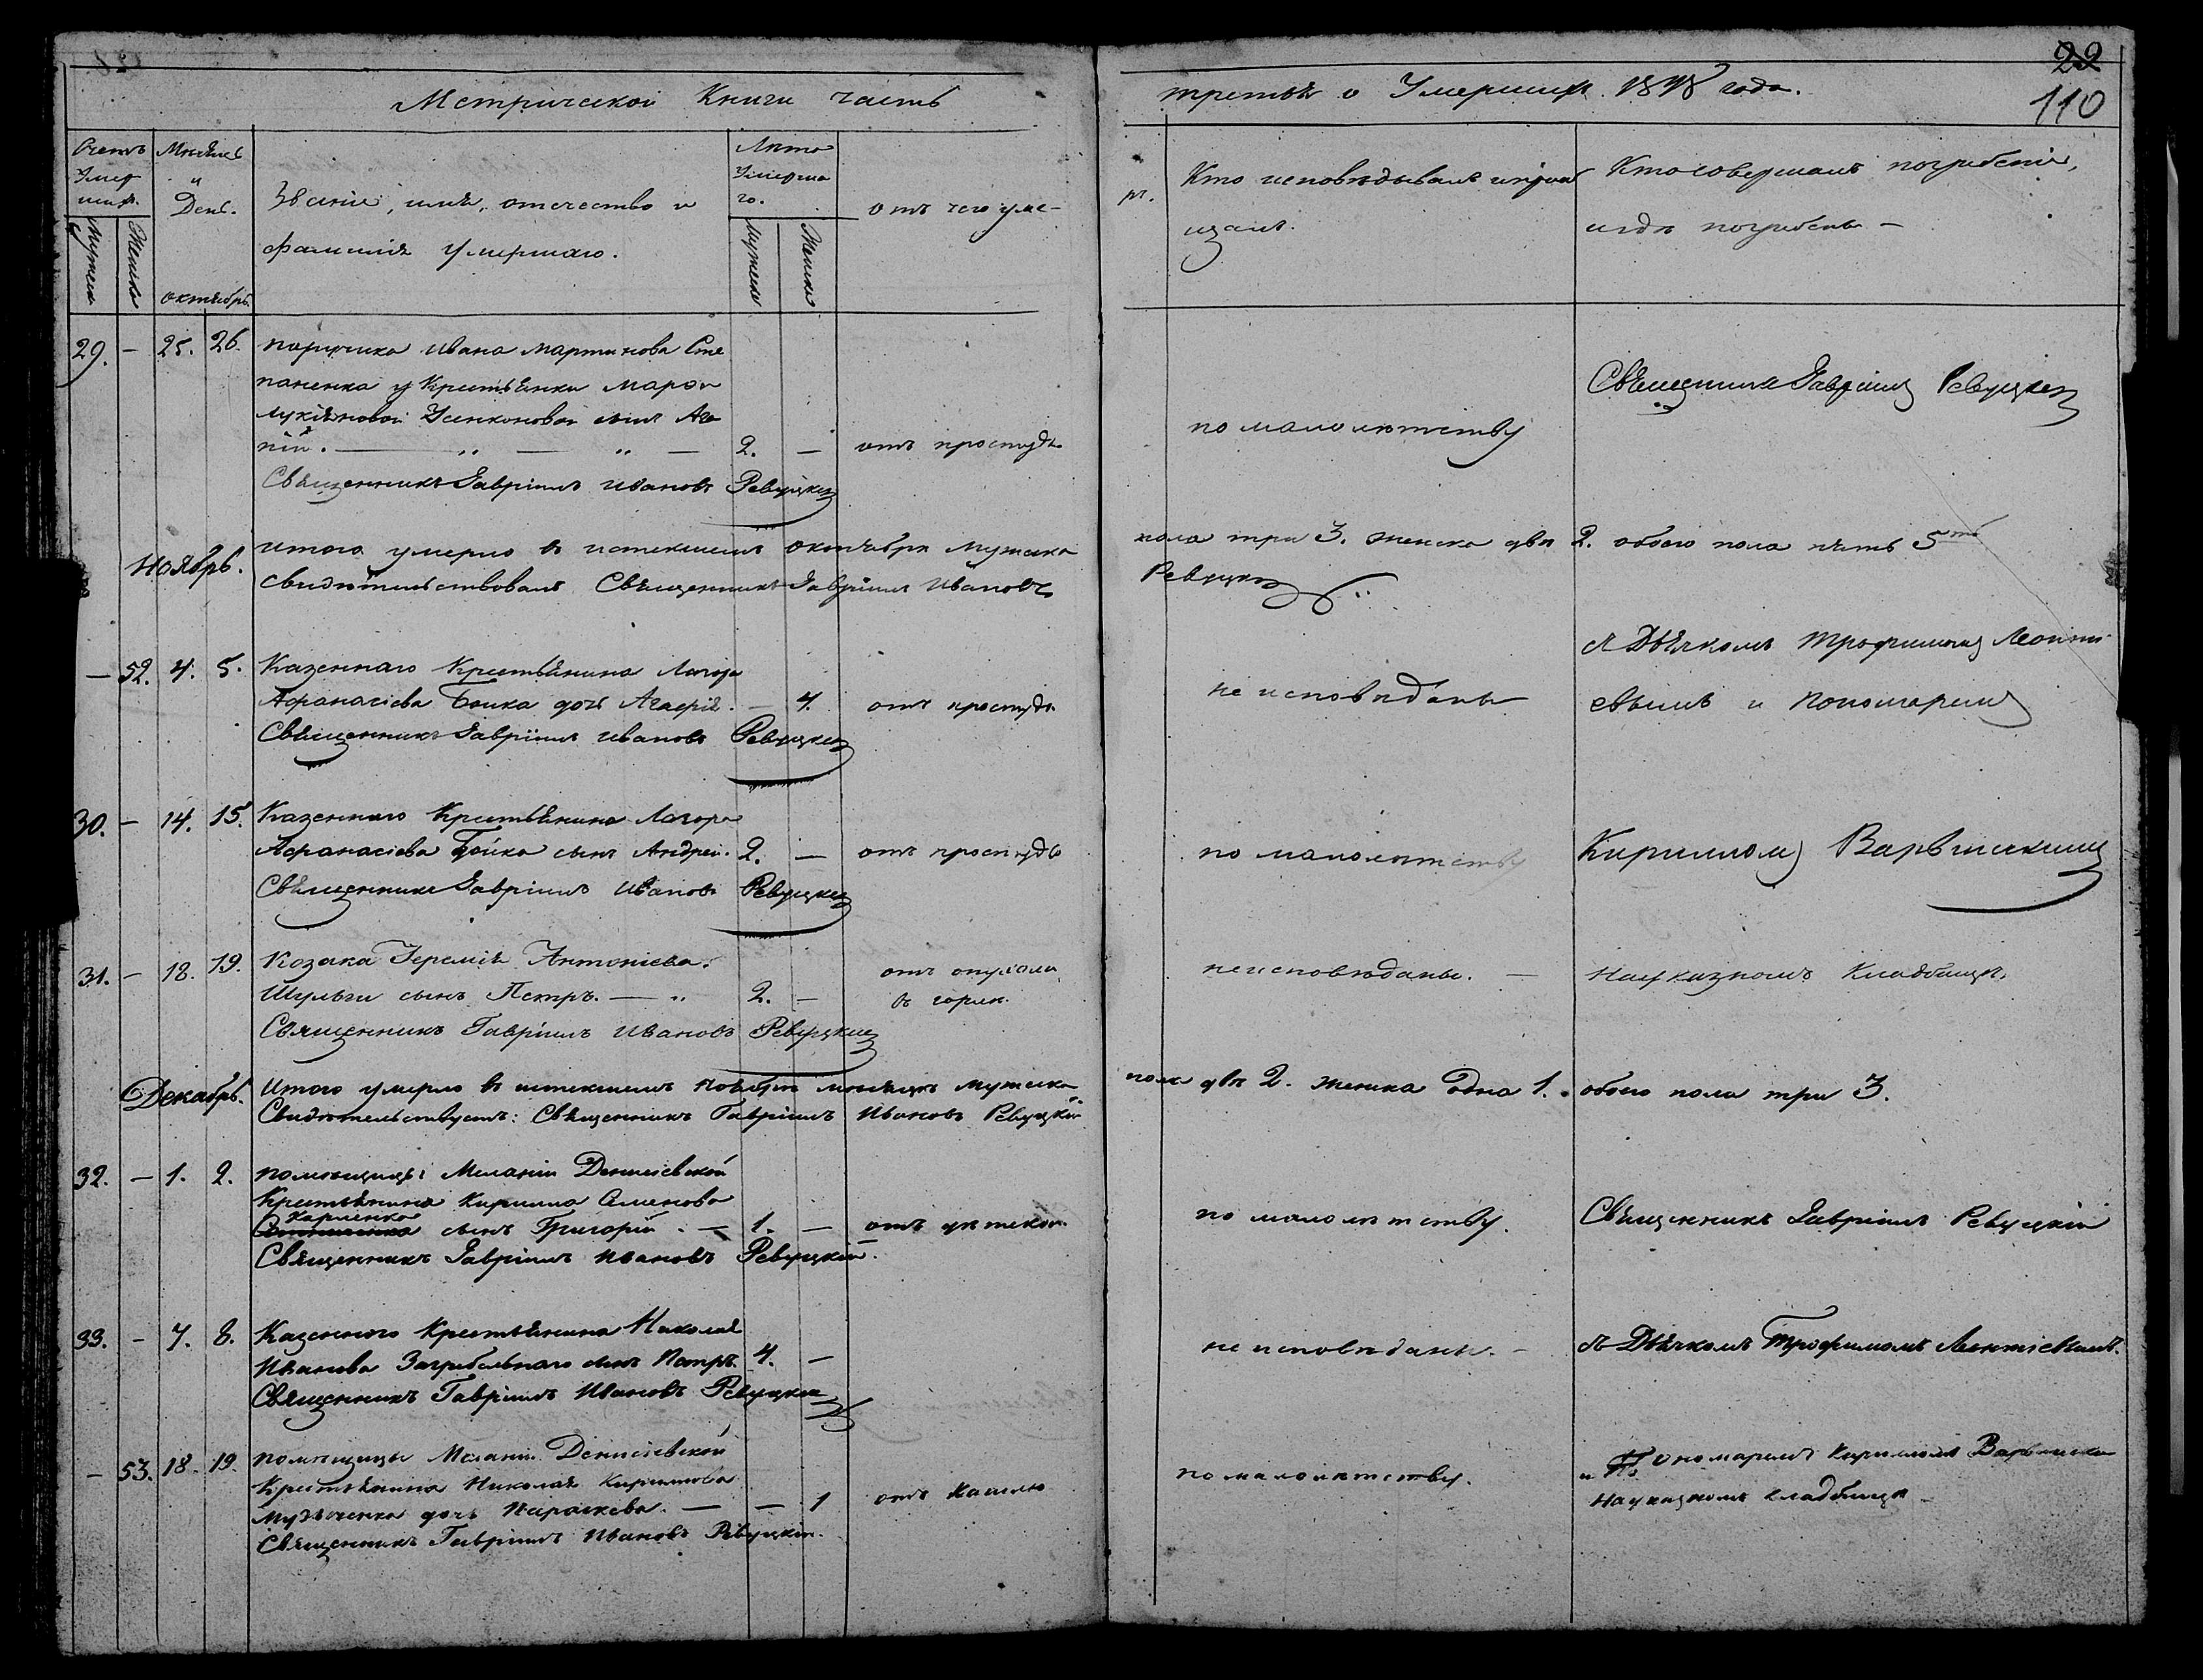 22
110
Метрической Книги часть
третья о Умерших 18 года.
Счетъ Умер ших.
Мужеска
Женска
Месяцъ и День.
октябрь.
Званіе, имя, отечество и
фамилія умершаго.
Лѣта Умерша го.
Мужеска
Женска
отъ чего уме-
ръ.
Кто исповѣдывалъ и пріоб
щалъ.
Кто совершалъ погребеніе,
и гдѣ погребены –
29. – 25. 26. поручика Ивана Мартинова Сте
паненка у Крестьянки Марфи
Лукіяновой сынъ
пій. – „ – „ – 2. – отъ простуды.
Священникъ Гавріилъ Ивановъ Ревуцкій
по малолѣтству
Священникъ Гавріилъ Ревуцкій
Ноябрь.
итого умерло въ истекшемъ октябрѣ Мужеска
пола три 3. женска двѣ 2. обоего пола пять 5ть
свидѣтельствовалъ Священникъ Гавріилъ Ивановъ
Ревуцкій
– 52. 4. 5. Казеннаго Крестьянина Лагора
Афанасіева Бойка дочь Агафія. – 4. отъ простуды
Священникъ Гавріилъ Ивановъ Ревуцкій
не исповѣданы
съ Дьячкомъ Трофимомъ Леонті
евымъ и Пономаремъ
30. – 14. 15. Казеннаго Крестьянина Лагора
Афанасіева Бойка сынъ Андрей. 2. – отъ простуды
Священникъ Гавріилъ Ивановъ Ревуцкій
по малолѣтству
Кирилломъ Варвинскимъ
31. – 18. 19. Козака Іереміи Антоніева
Шульги сынъ Петръ. – „ 2. – отъ опухоли
въ горлѣ.
Священникъ Гавріилъ Ивановъ Ревуцкій
не исповѣданы. –
На указномъ Кладбищѣ.
Декабрь.
Итого умерло въ истекшемъ ноябрѣ мѣсяцѣ мужеска
пола двѣ 2. женска одна 1. обоего пола три 3.
Свидѣтельствуетъ: Священникъ Гавріилъ Ивановъ Ревуцкій
32. – 1. 2. помѣщицы Меланіи Денисіевской
Крестьянина Кирилла Семенова
Карпенка
сынъ Григорій. – 1. – отъ
Священникъ Гавріилъ Ивановъ Ревуцкій.
по малолѣтству.
Священникъ Гавріилъ Ревуцкій
33. – 7. 8. Казенного Крестьянина Николая
Иванова Загребельнаго сынъ Петръ. 4. –
Священникъ Гавріилъ Ивановъ Ревуцкій
не исповѣданы. –
съ Дьячкомъ Трофимомъ Леонтіевымъ.
– 53. 18. 19. помѣщицы Меланіи Денисіевской
Крестьянина Николая Кириллова
дочь Параскева. – – 1 отъ кашлю
Священникъ Гавріилъ Ивановъ Ревуцкій.
по малолѣтству.
и Пономаремъ Кирилломъ
На указномъ кладбищѣ –